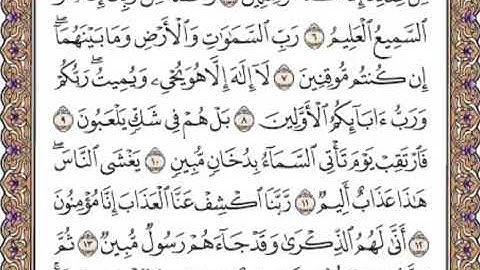 السَّمِيعُ الْعَلِيمُ ٦ رَبِّ السَّمَٰوَٰتِ وَالْأَرْضِ وَمَا بَيْنَهُمَا ۖ
إِن كُنتُم مُّوقِنِينَ ٧ لَا إِلَٰهَ إِلَّا هُوَ يُحْيِۦ وَيُمِيتُ ۖ رَبُّكُمْ
وَرَبُّ ءَابَائِكُمُ الْأَوَّلِينَ ٨ بَلْ هُمْ فِي شَكٍّ يَلْعَبُونَ ٩
فَارْتَقِبْ يَوْمَ تَأْتِي السَّمَاءُ بِدُخَانٍ مُّبِينٍ ١٠ يَغْشَى النَّاسَ ۖ
هَٰذَا عَذَابٌ أَلِيمٌ ١١ رَّبَّنَا اكْشِفْ عَنَّا الْعَذَابَ إِنَّا مُؤْمِنُونَ
١٢ أَنَّىٰ لَهُمُ الذِّكْرَىٰ وَقَدْ جَاءَهُمْ رَسُولٌ مُّبِينٌ ١٣ ثُمَّ